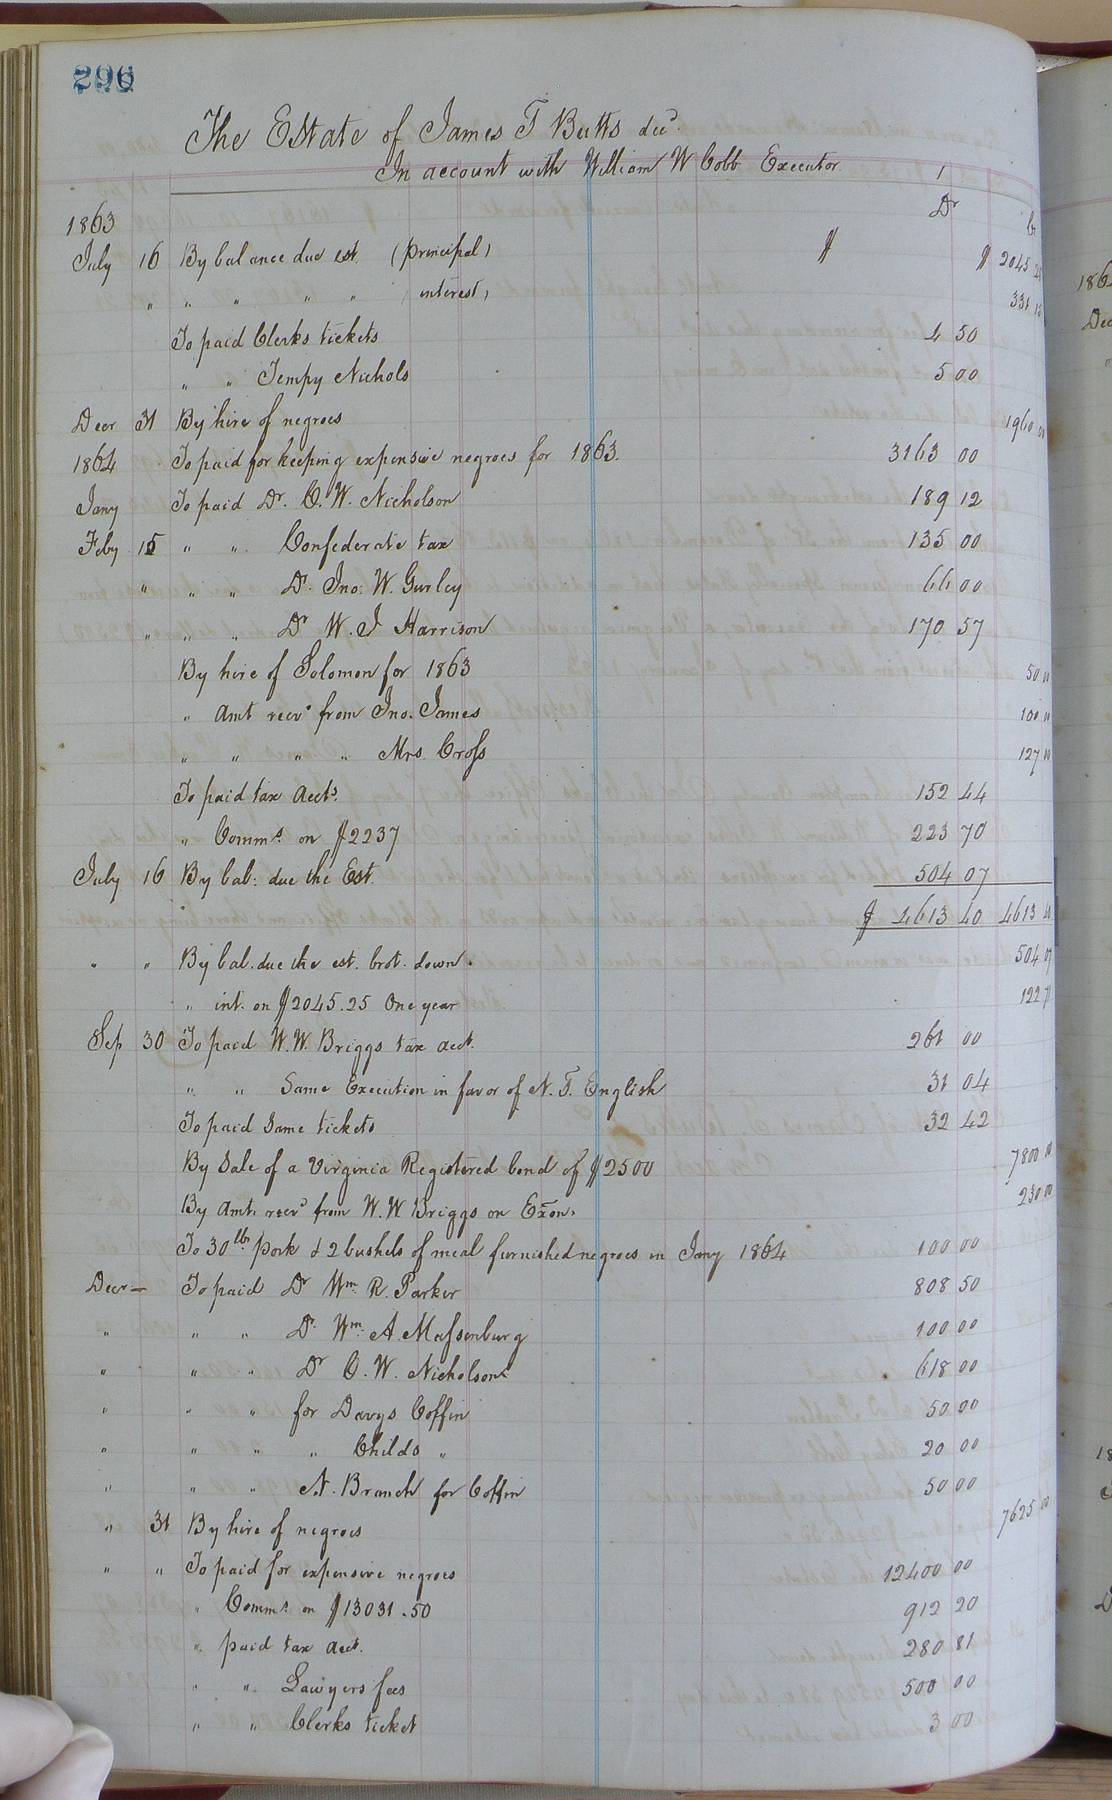 296
The Estate of James T Butts decd.
In account with William W Cobb Executor
1863 Dr Cr
July 16 By balance due est. (principal) $ $ 2045
" " " " " (interest) 331
To paid Clerks tickets 4 50
" " Tempy Nichols 5 00
Decr 31 By hire of negroes 1960 00
1864 To paid for keeping expensive negroes for 1863. 3163 00
Jany To paid Dr. O. W. Nicholson 189 12
Feby 15 " " Confederate tax 135 00
" " " Dr. Jno. W. Gurley 66 00
" " " Dr W. J Harrison 170 57
By hire of Solomon for 1863 50 00
" Amt recd from Jno. James 100 00
" " " " Mrs. Cross 127 00
To paid tax Accts. 152 44
" Comms. on $2237 223 70
July 16 By bal: due the Est. 504 07
$ 4613 40 4613 40
" " By bal. due the est. brot. down. 504 07
" int. on $2045.25 One year 122 71
Sep 30 To paid W. W. Briggs tax acct. 261 00
" " Same Execution in favor of N. T. English 31 04
To paid Same tickets 32 42
By Sale of a Virginia Registered bond of $2500 7800 00
By Amt. recd from W. W Briggs on Exōn. 230 00
To 30 lbs pork & 2 bushels of meal furnished negroes in Jany 1864 100 00
Decr — To paid Dr Wm. R. Parker 808 50
" " " Dr. Wm. A. Massenburg 100 00
" " " Dr O. W. Nicholson 618 00
" " " for Davys Coffin 50 00
" " " " Childs " 20 00
" " " N. Branch for Coffin 50 00
" 31 By hire of negroes 7625 00
" " To paid for expensive negroes 12400 00
" Comms. on $13031.50 912 20
" paid tax acct. 280 81
" " Lawyers fees 500 00
" " Clerks ticket 3 00